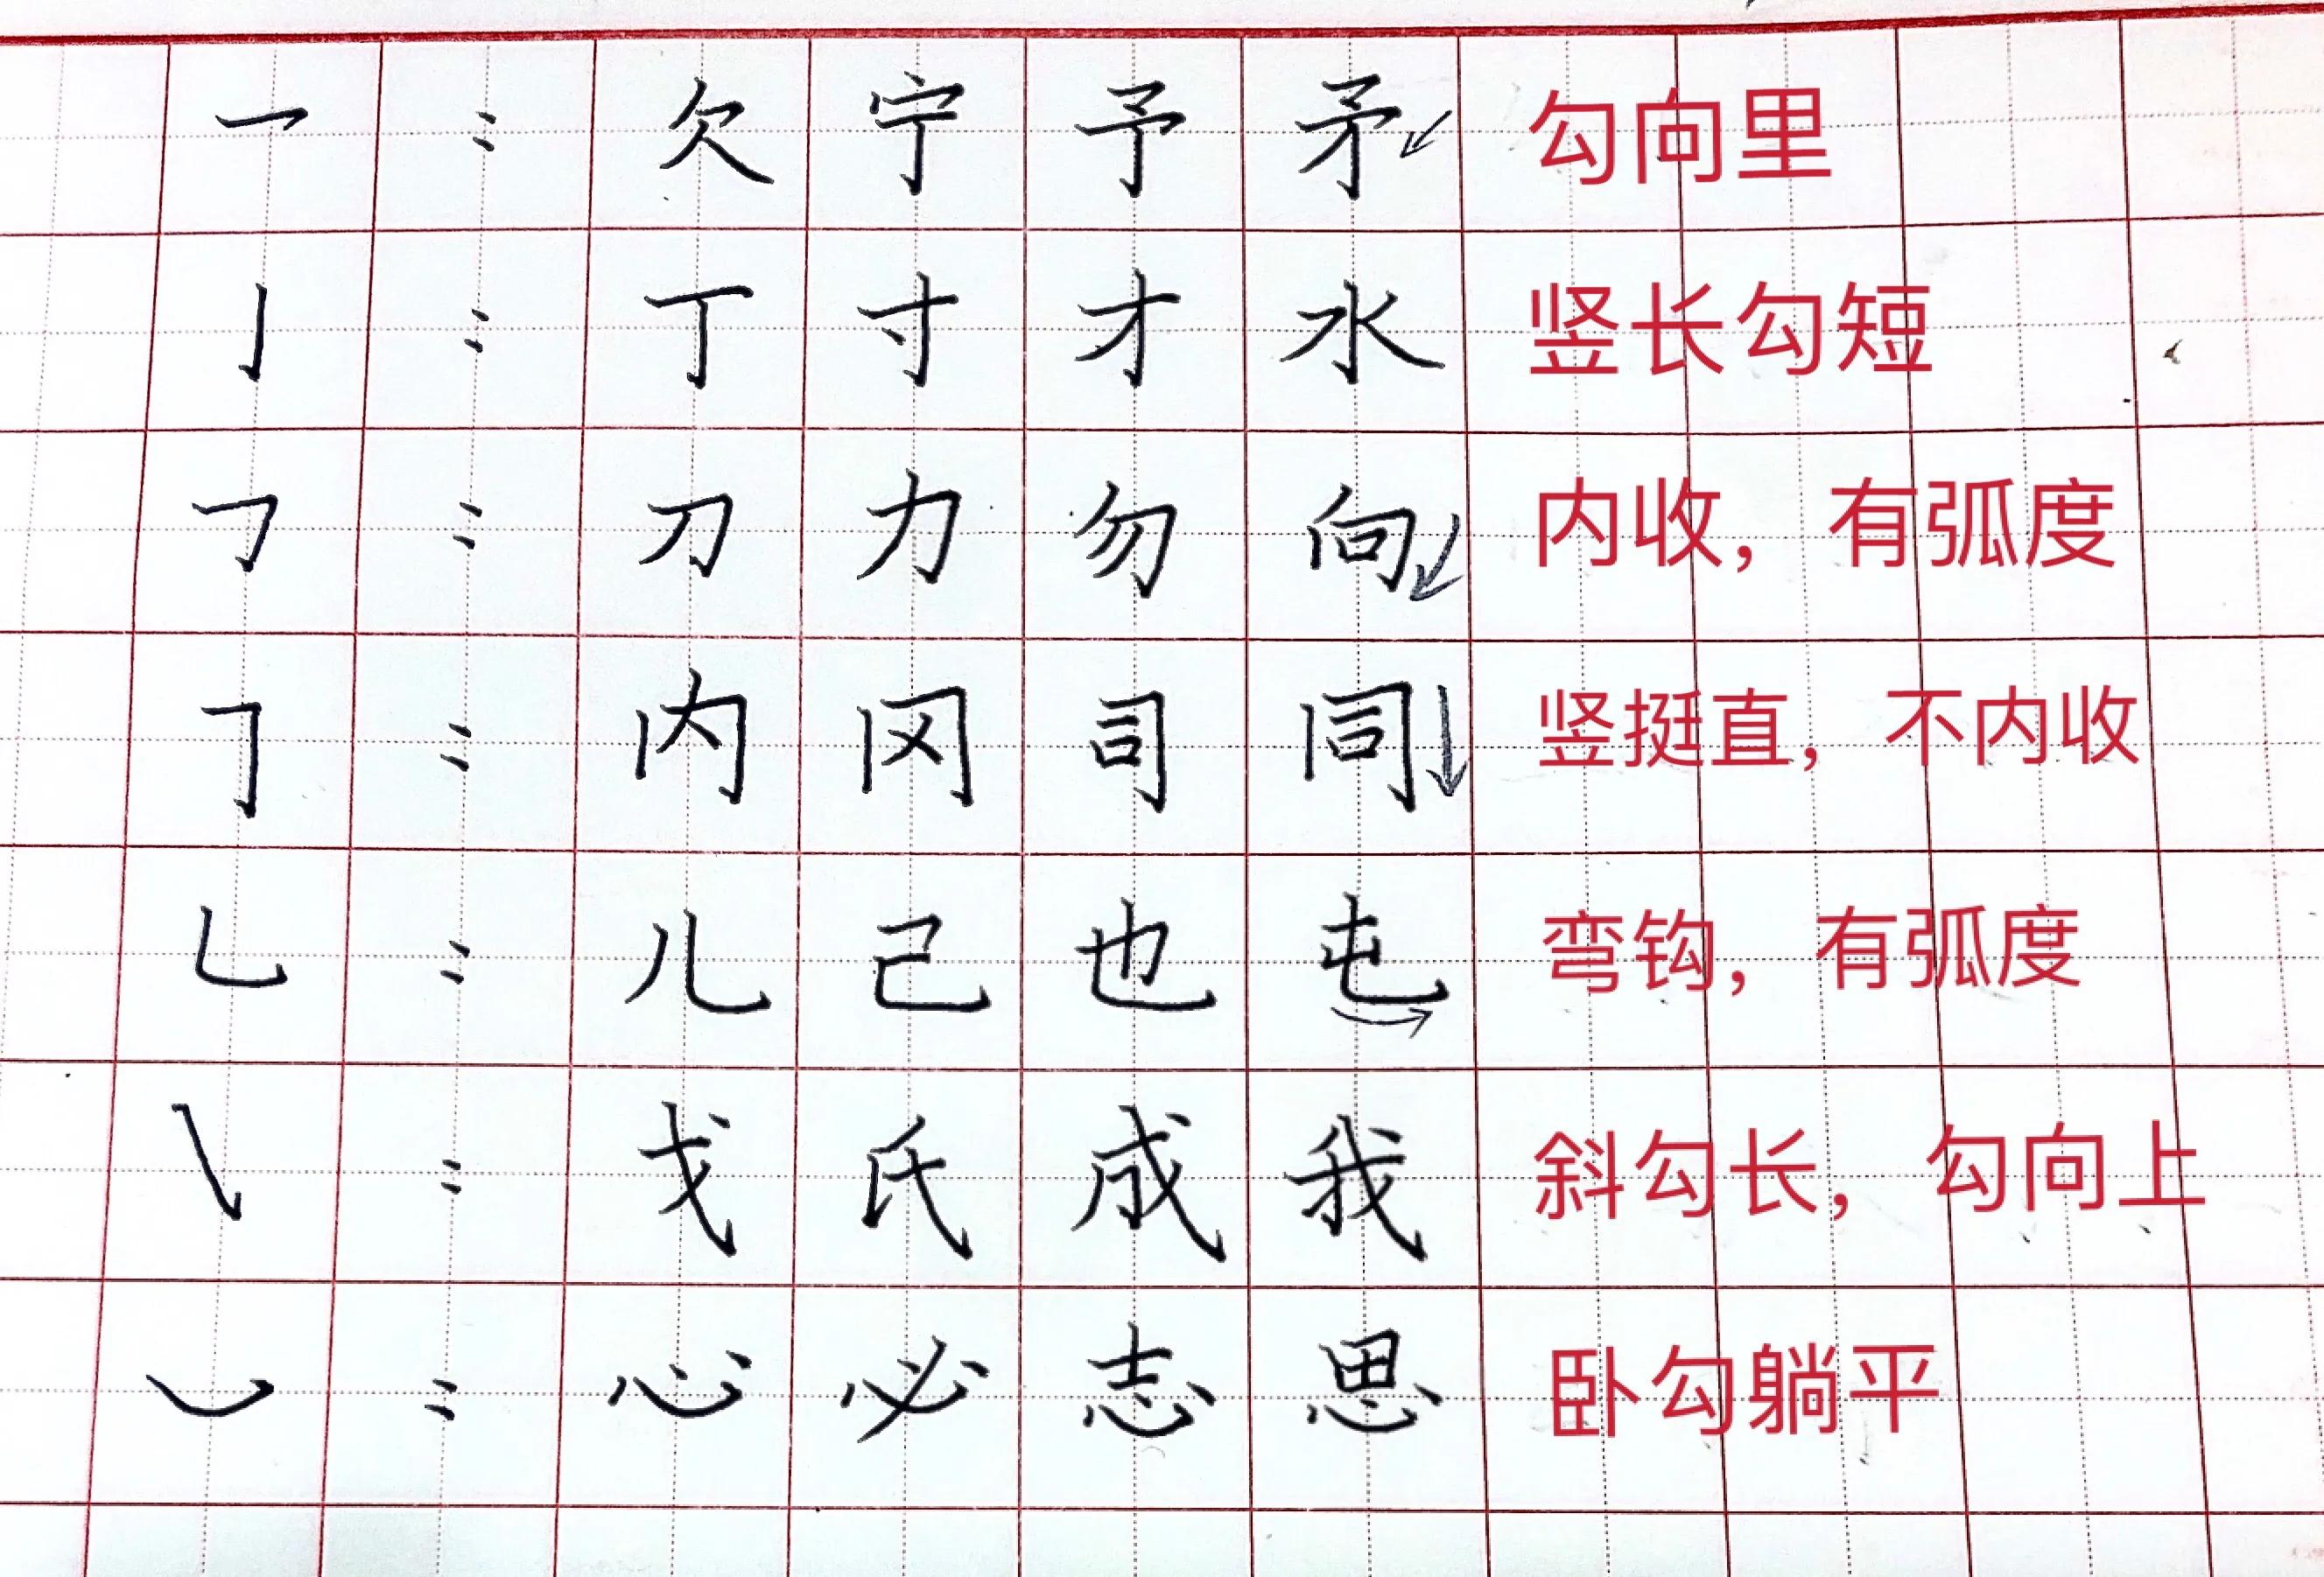 乛 : 欠 宁 予 矛 勾向里
亅 : 丁 寸 才 水 竖长勾短
𠃌 : 刀 力 勿 向 内收，有弧度
𠃌 : 内 冈 司 同 竖挺直，不内收
乚 : 儿 己 也 屯 弯钩，有弧度
㇂ : 戈 氏 成 我 斜勾长，勾向上
㇃ : 心 必 志 思 卧勾躺平